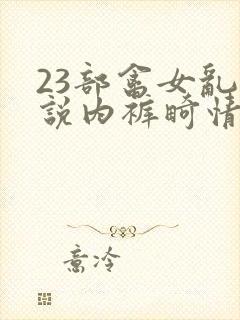 23部畲女亂
説内裤畸情
意冷